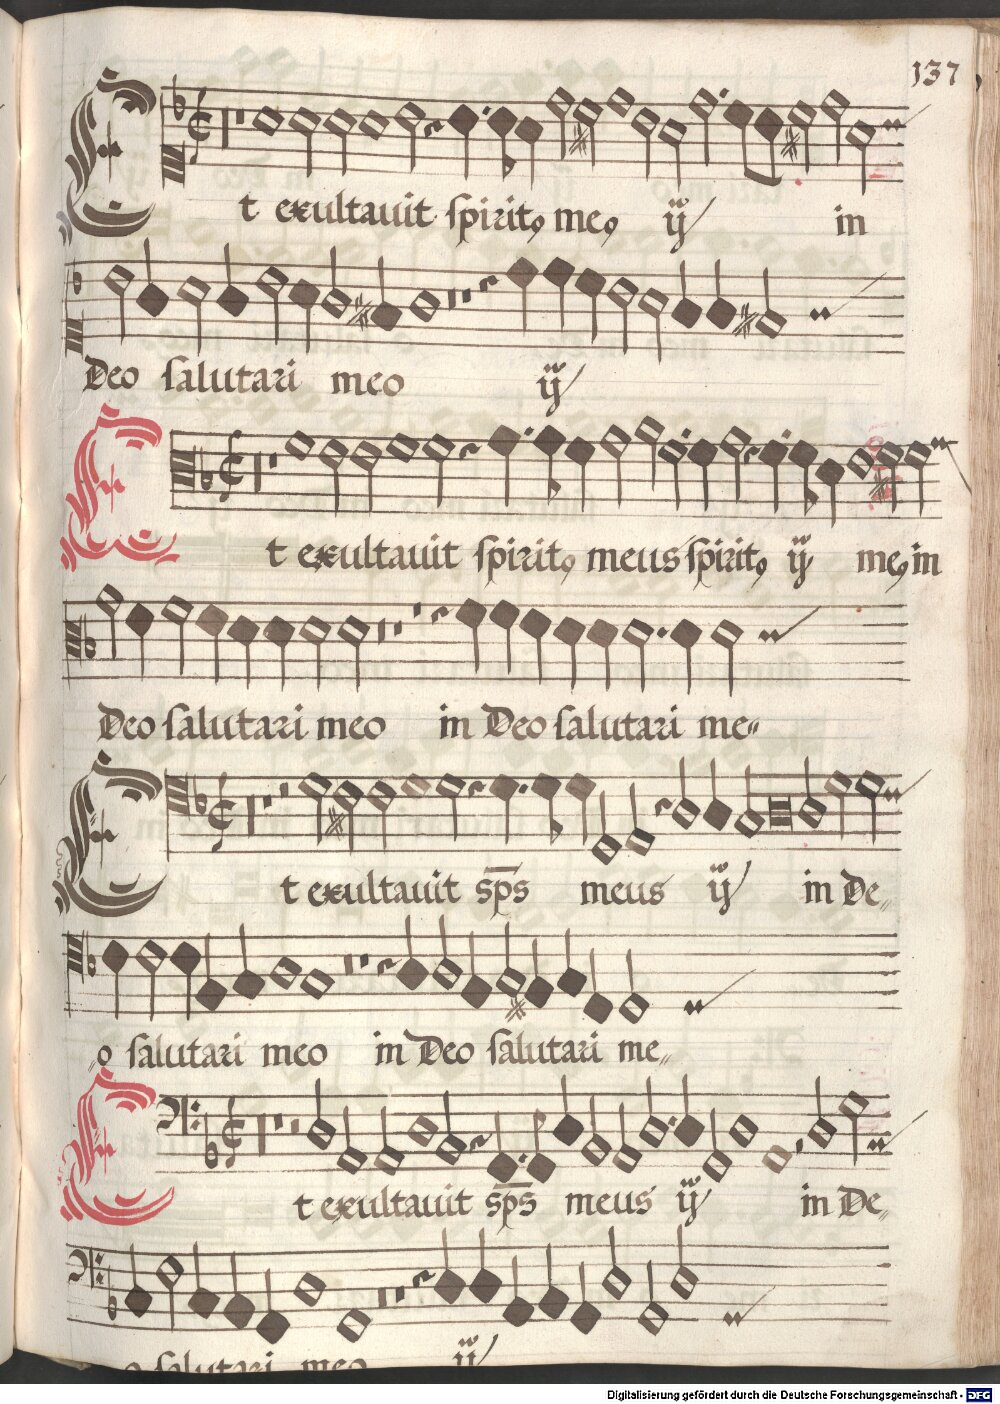 137
Et exultauit spirit9 me9 ij in
Deo salutari meo ij
Et exultauit spirit9 meus spirit9 ij me9 in
Deo salutari meo in Deo salutari me〃
Et exultauit sp̅s meus ij in De〃
〃o salutari meo in Deo salutari me〃
Et exultauit sp̅s meus ij in De〃
o salutari meo ij
Digitalisierung gefördert durch die Deutsche Forschungsgemeinschaft - DFG